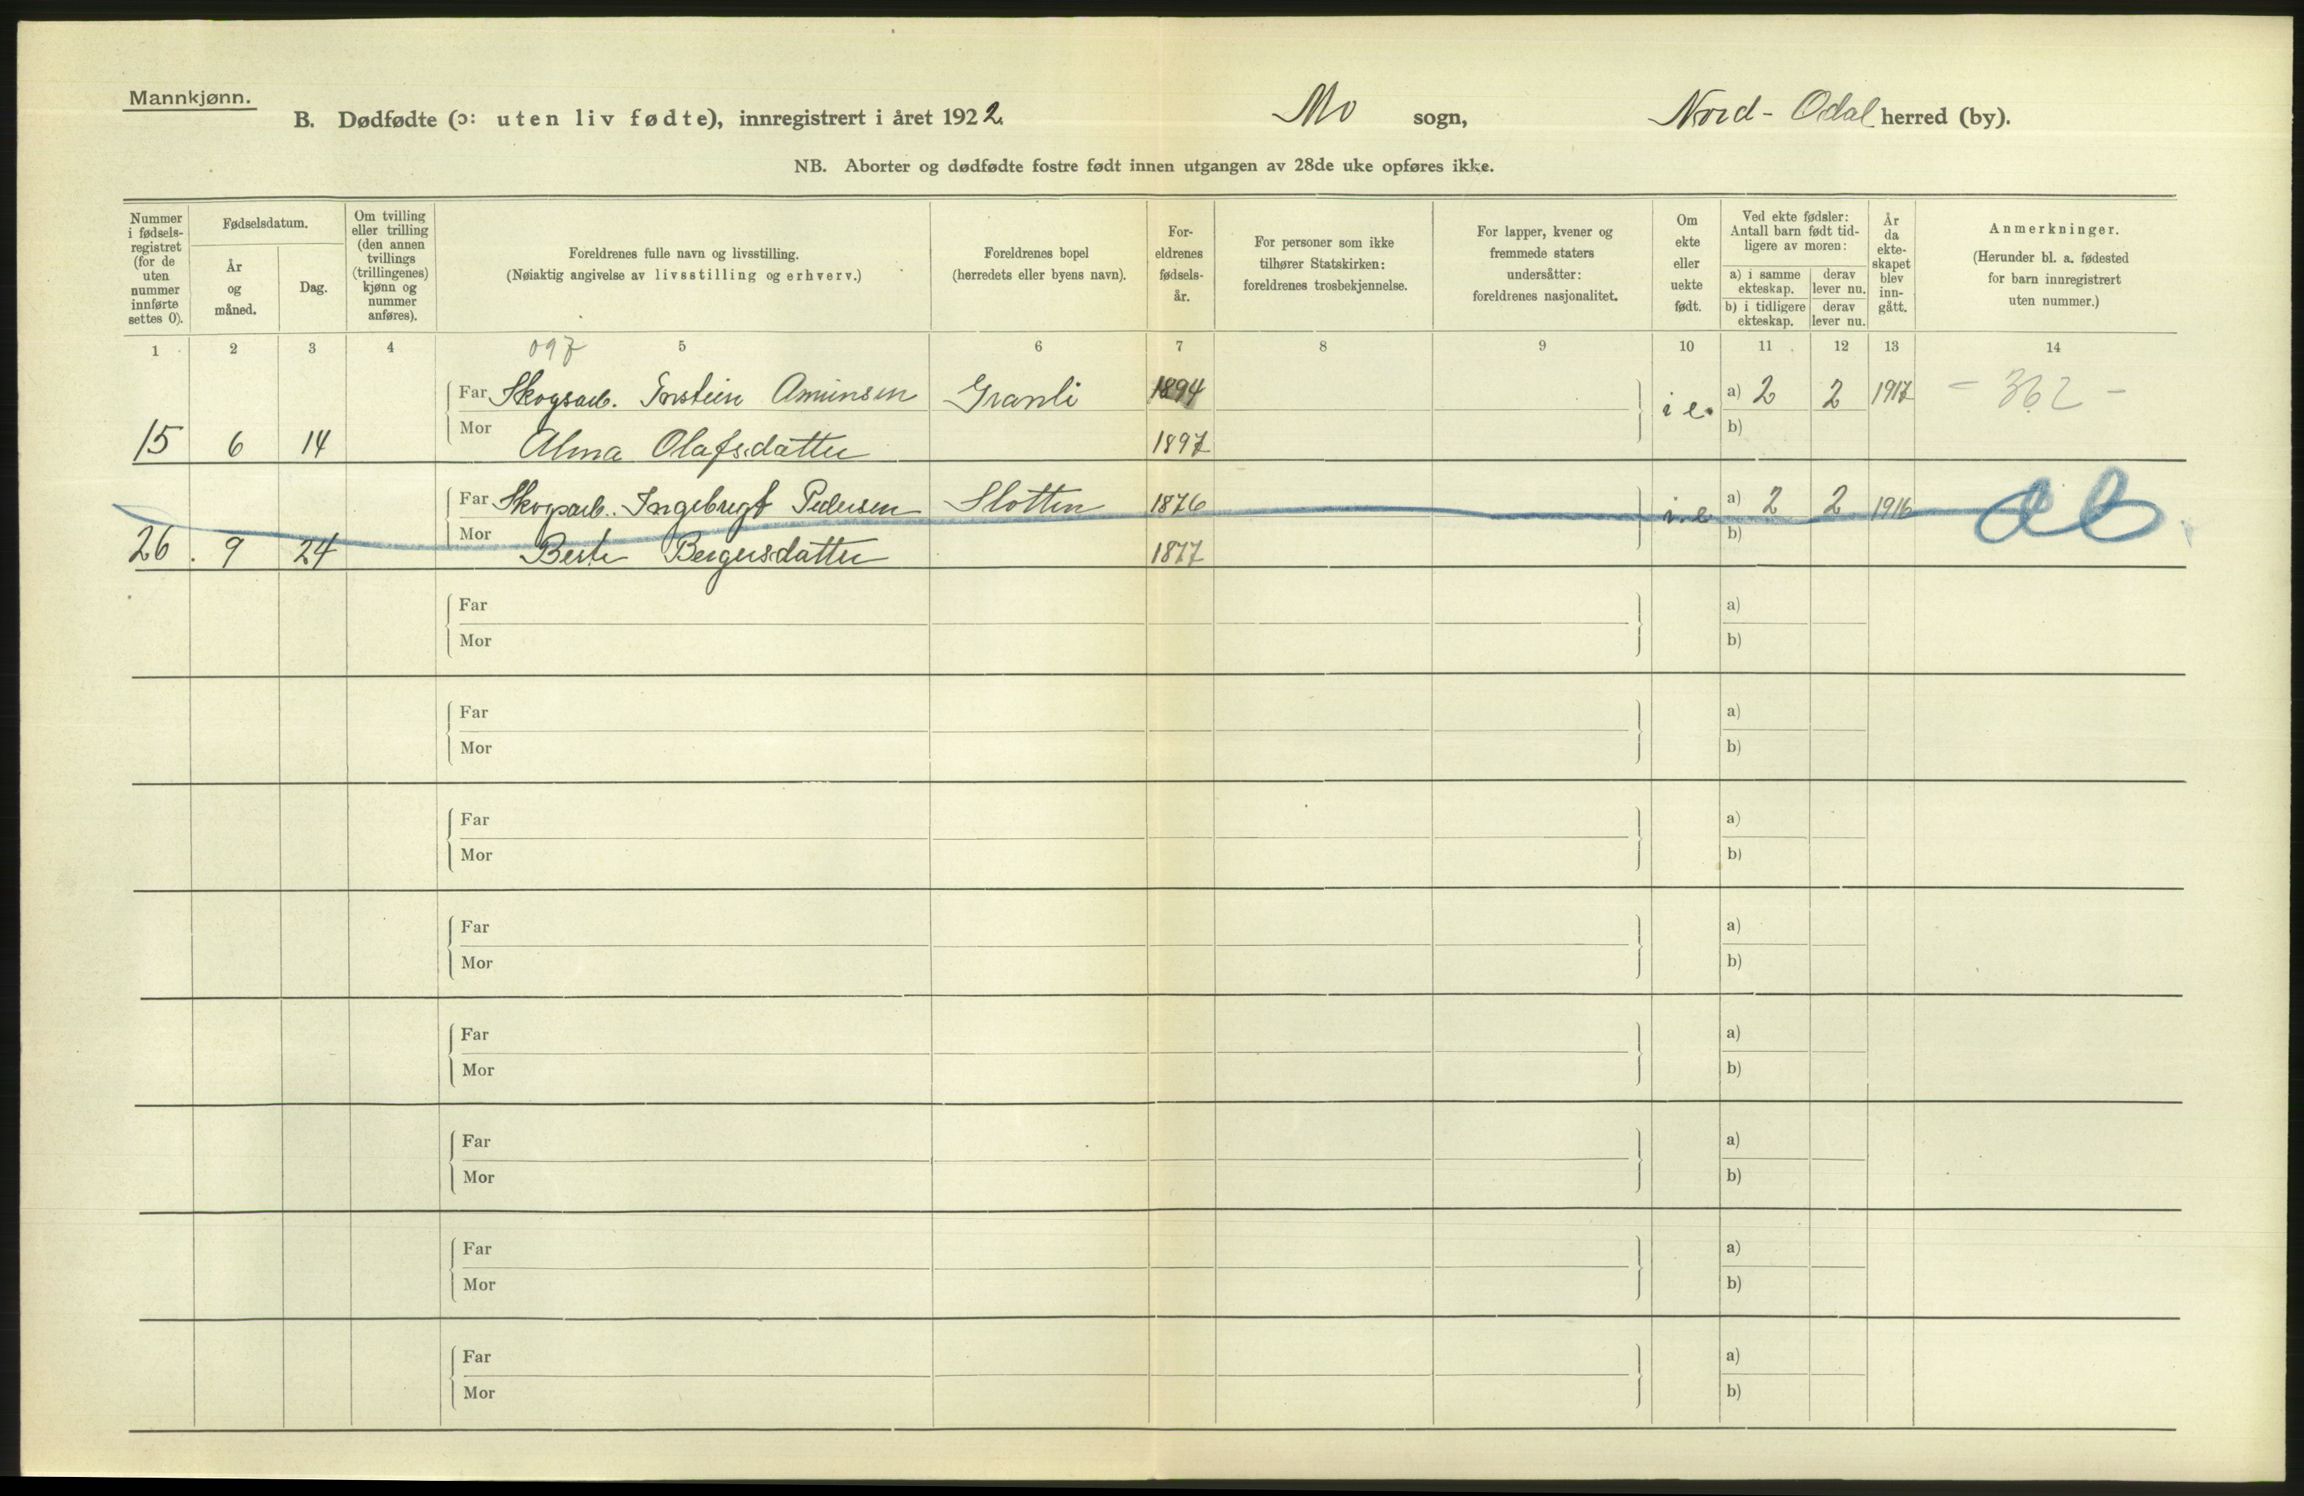 Mannkjønn.
B. Dødfødte (ɔ: uten liv fødte), innregistrert i året 1922. Mo sogn, Nord-Odal herred (by).
NB. Aborter og dødfødte fostre født innen utgangen av 28de uke opføres ikke.
Nummer i fødselsregistret (for de uten nummer innførte settes 0).
Fødselsdatum.
År og måned.
Dag.
Om tvilling eller trilling (den annen tvillings (trillingenes) kjønn og nummer anføres).
Foreldrenes fulle navn og livsstilling.
(Nøiaktig angivelse av livsstilling og erhverv.)
Foreldrenes bopel
(herredets eller byens navn).
Foreldrenes fødselsår.
For personer som ikke tilhører Statskirken: foreldrenes trosbekjennelse.
For lapper, kvener og fremmede staters undersåtter: foreldrenes nasjonalitet.
Om ekte eller uekte født.
Ved ekte fødsler: Antall barn født tidligere av moren:
a) i samme ekteskap. derav lever nu.
b) i tidligere ekteskap. derav lever nu.
År da ekteskapet blev inngått.
Anmerkninger.
(Herunder bl. a. fødested for barn innregistrert uten nummer.)
1 2 3 4 097 5 6 7 8 9 10 11 12 13 14
Far Skogsarb. Torstein Amunsen Granli 1894 i e. a) 2 2 1917 - 362 -
15 6 14 Mor Alma Olafsdatter 1897 b)
Far Skogsarb. Ingebrigt Pedersen Slotten 1876 i e a) 2 2 1916
26. 9 24 Mor Berte Bergersdatter 1877 b)
Far a)
Mor b)
Far a)
Mor b)
Far a)
Mor b)
Far a)
Mor b)
Far a)
Mor b)
Far a)
Mor b)
Far a)
Mor b)
Far a)
Mor b)